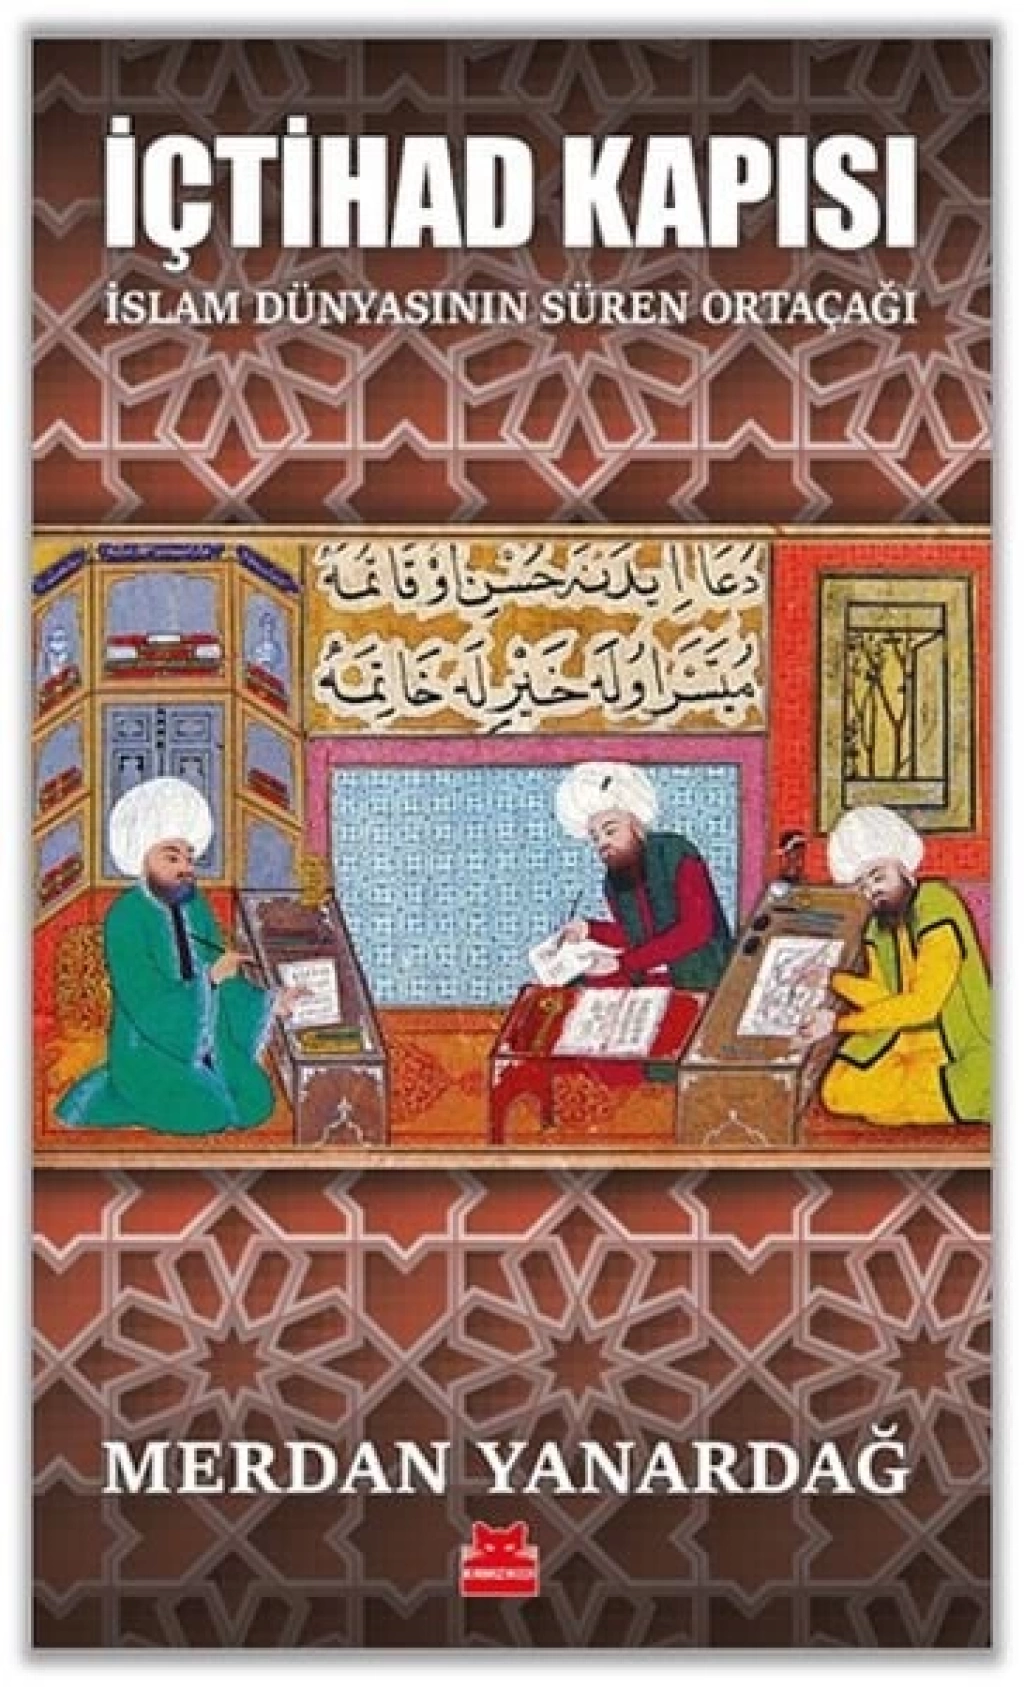 İÇTİHAD KAPISI
İSLAM DÜNYASININ SÜREN ORTAÇAĞI
دُعَا اِيدَنَهُ حُسْنِ اوْقَاتِمَهُ
مُيَسَّرْ اوُلَه خَيْرِلَه خَاتِمَهُ
MERDAN YANARDAĞ
KIRMIZI KEDİ